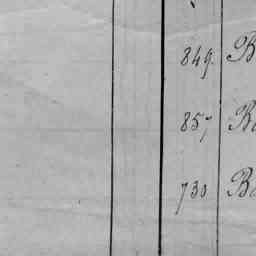 849. B
857 Ba
730 Ba